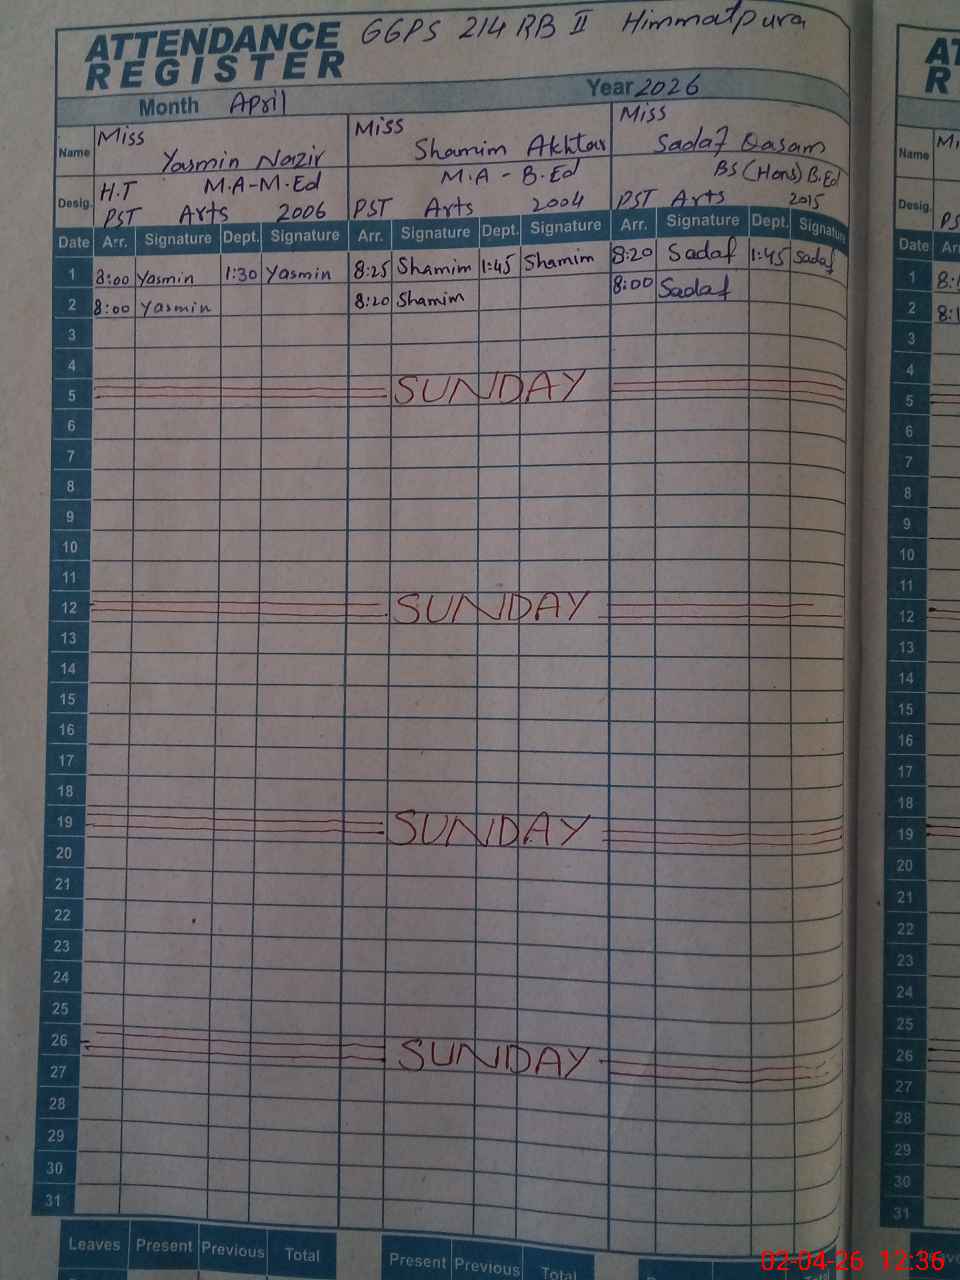 ATTENDANCE REGISTER GGPS 214 RB II Himmatpura
Month April Year 2026
Name Miss Yasmin Nazir Miss Shamim Akhtar Miss Sadaf Qasam
Desig. H.T M.A-M.Ed M.A - B.Ed BS (Hons) B.Ed
PST Arts 2006 PST Arts 2004 PST Arts 2015
Date Arr. Signature Dept. Signature Arr. Signature Dept. Signature Arr. Signature Dept. Signature
1 8:00 Yasmin 1:30 Yasmin 8:25 Shamim 1:45 Shamim 8:20 Sadaf 1:45 Sadaf
2 8:00 Yasmin 8:20 Shamim 8:00 Sadaf
3
4
5 SUNDAY
6
7
8
9
10
11
12 SUNDAY
13
14
15
16
17
18
19 SUNDAY
20
21
22
23
24
25
26 SUNDAY
27
28
29
30
31
Leaves Present Previous Total Present Previous Total
Name
Desig.
Date Arr
1
2
3
4
5
6
7
8
9
10
11
12
13
14
15
16
17
18
19
20
21
22
23
24
25
26
27
28
29
30
31
02-04-26 12:36